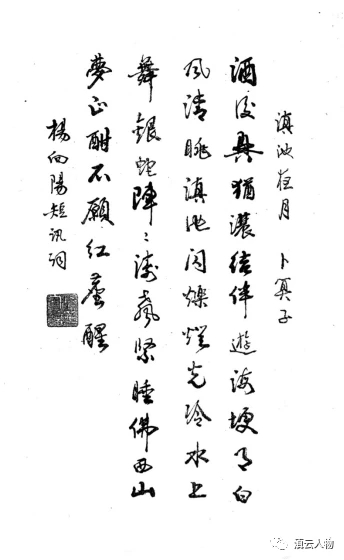 滇池夜月 卜算子
酒後興猶濃結伴遊海埂月白
風清眺滇池閃爍燈光冷水上
舞銀蛇陣〻濤聲緊睡佛西山
夢正酣不願紅塵醒
楊向陽短訊詞
滇云人物